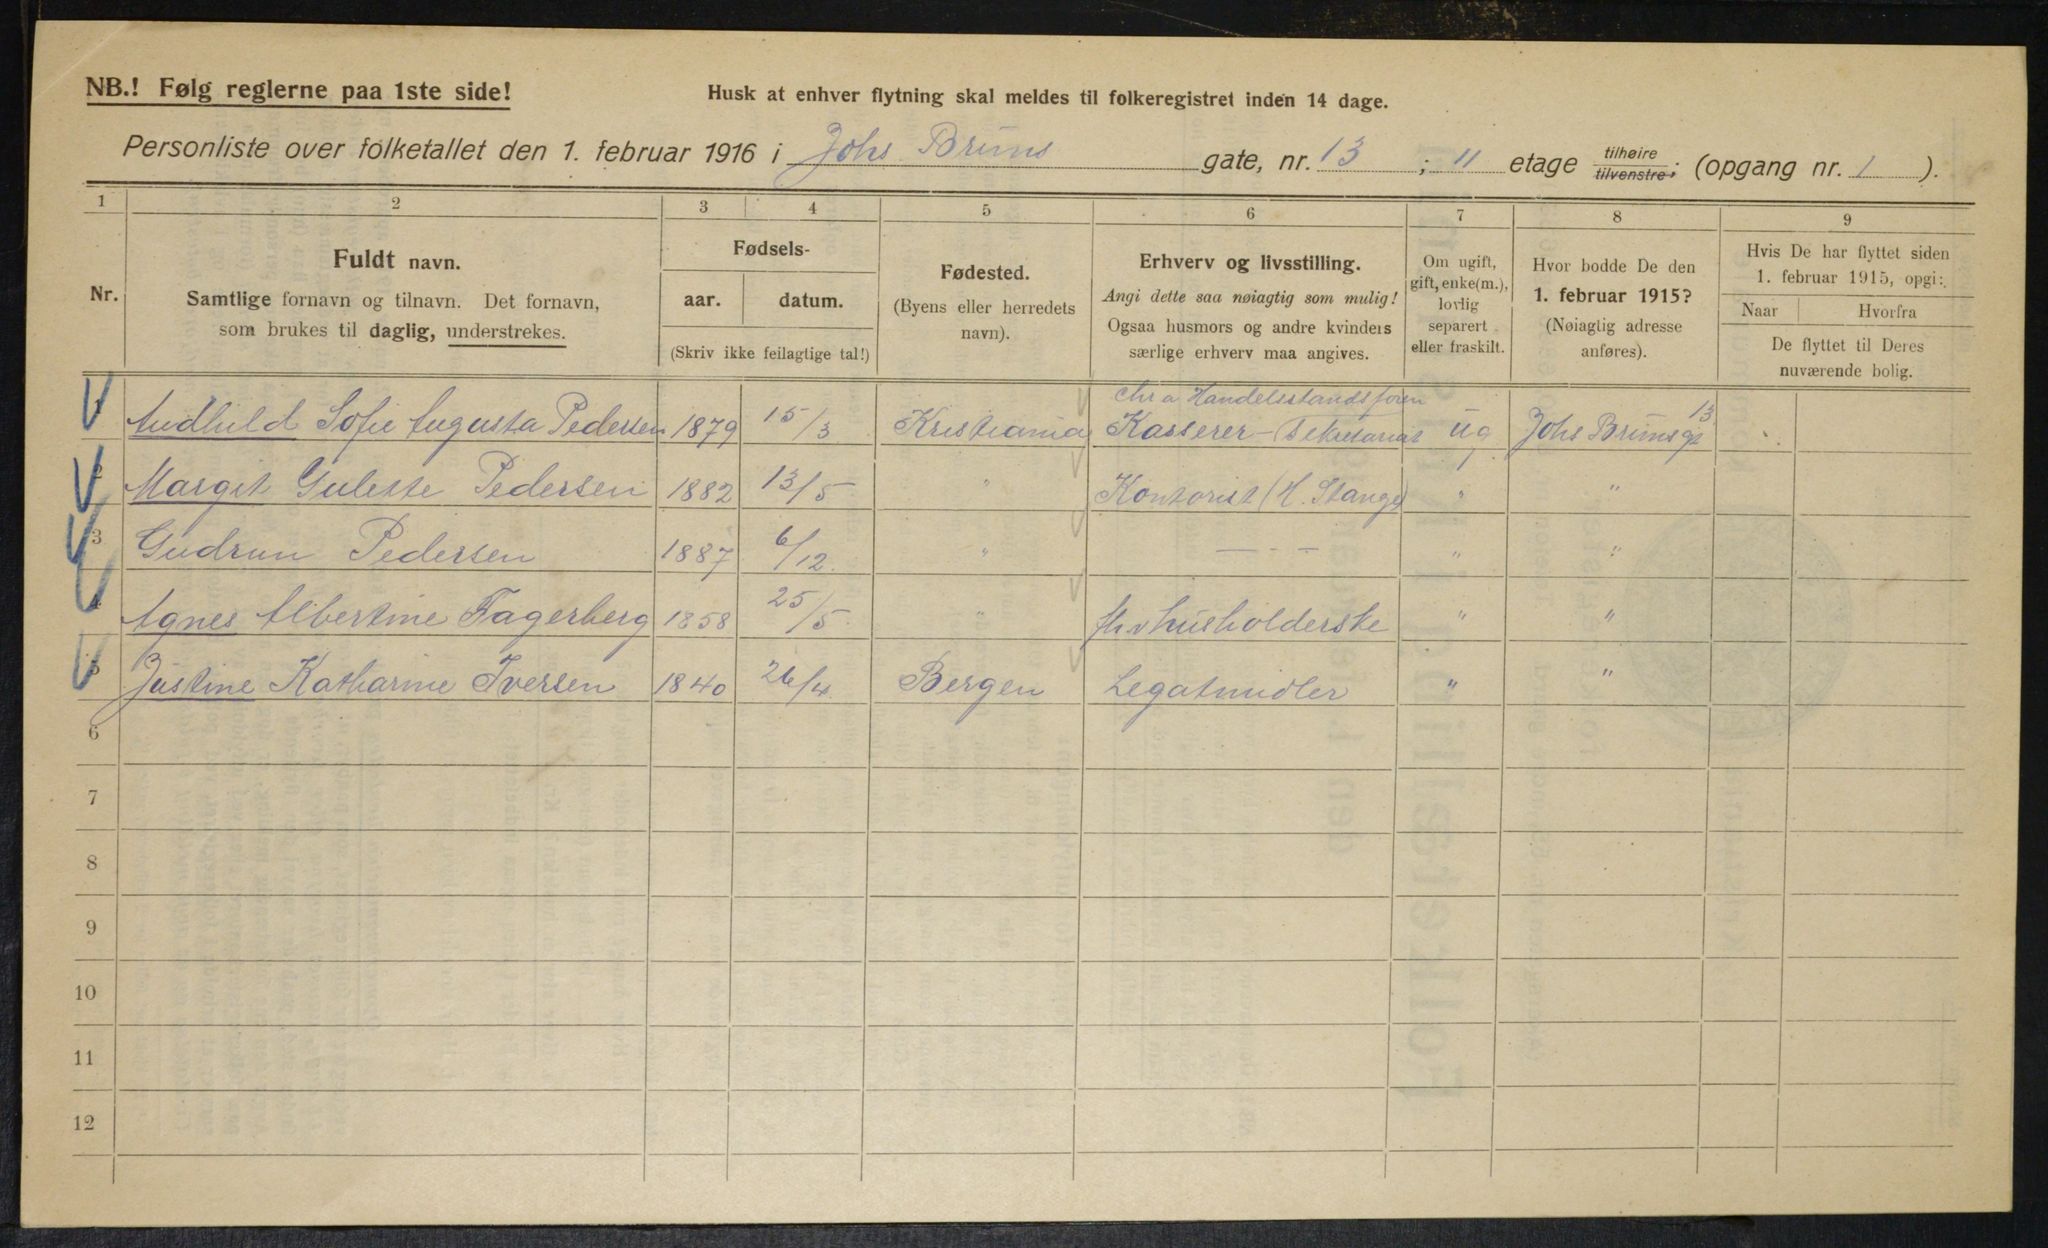 NB.! Følg reglerne paa 1ste side!
Husk at enhver flytning skal meldes til folkeregistret inden 14 dage.
Personliste over folketallet den 1. februar 1916 i Johs Bruns gate, nr. 13 ; 11 etage tilhøire tilvenstre; (opgang nr. 1 ).
1 2 3 4 5 6 7 8 9
Nr.
Fuldt navn.
Samtlige fornavn og tilnavn. Det fornavn,
som brukes til daglig, understrekes.
Fødsels-
aar. datum.
(Skriv ikke feilagtige tal!)
Fødested.
(Byens eller herredets
navn).
Erhverv og livsstilling.
Angi dette saa nøiagtig som mulig!
Ogsaa husmors og andre kvinders
særlige erhverv maa angives.
Om ugift,
gift, enke(m.),
lovlig
separert
eller fraskilt.
Hvor bodde De den
1. februar 1915?
(Nøiagtig adresse
anføres).
Hvis De har flyttet siden
1. februar 1915, opgi:
Naar Hvorfra
De flyttet til Deres
nuværende bolig.
Chra Handelsstandsforen
1 Audhild Sofie Augusta Pedersen 1879 15/3 Kristiania Kasserer - Sekretariat ug Johs Brunsgt 13
2 Margit Gulette Pedersen 1882 13/5 " Kontorist (H. Stange) " "
3 Gudrun Pedersen 1887 6/12 " — - - " "
4 Agnes Albertine Fagerberg 1858 25/5 " fhv husholderske " "
5 Justine Katharine Iversen 1840 26/4 Bergen Legatmidler " "
6
7
8
9
10
11
12